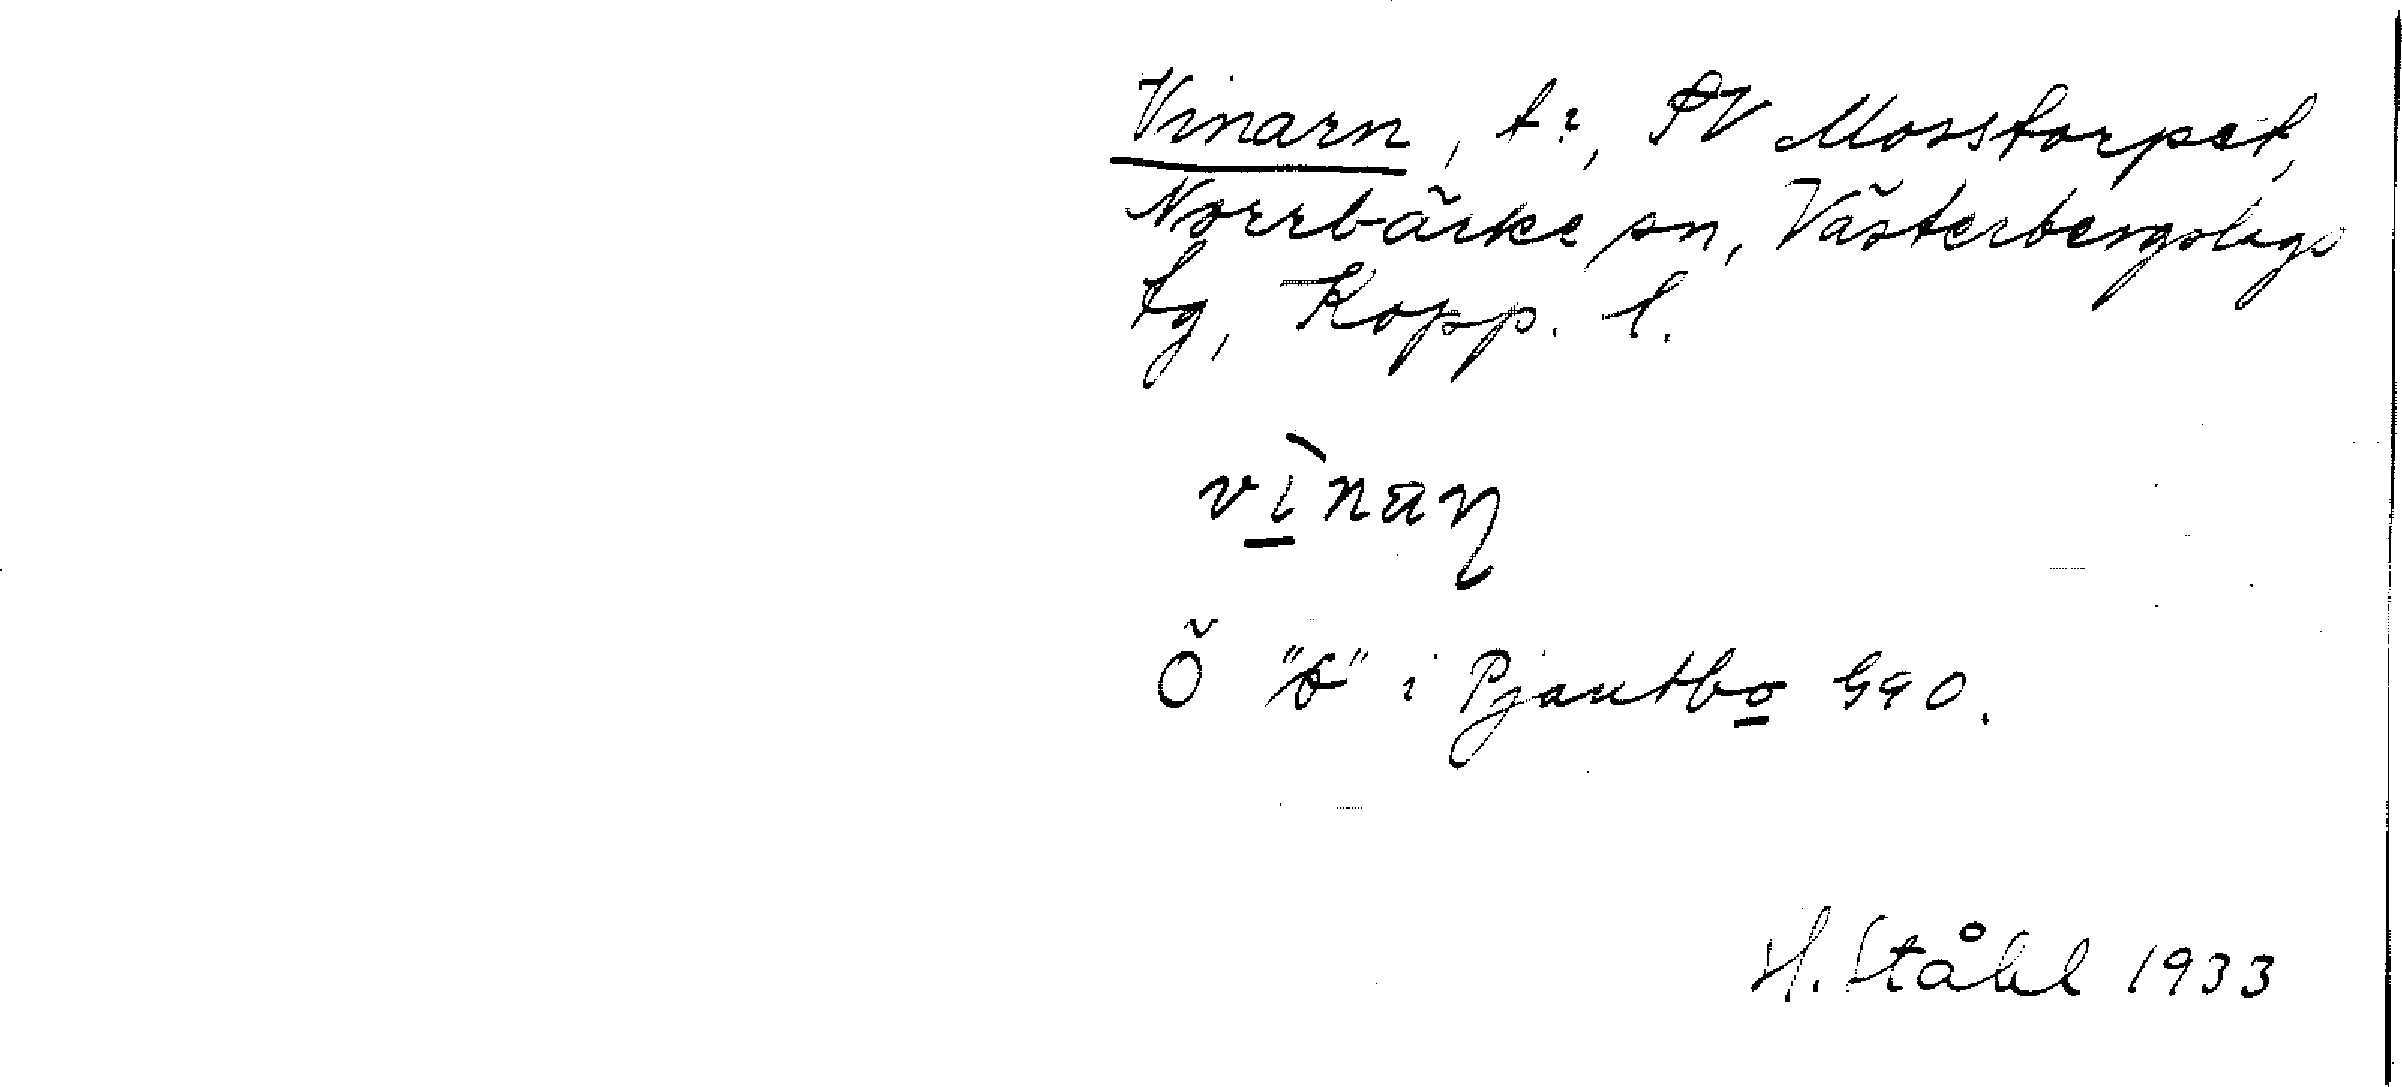 Vinarn, t:, SV Mosstorpet,
Norrbärke sn, Västerbergslags
tg, Kopp. l.
vìnaꞃ
Ö "b" i Pjantbo GGO.
H. Ståhl 1933